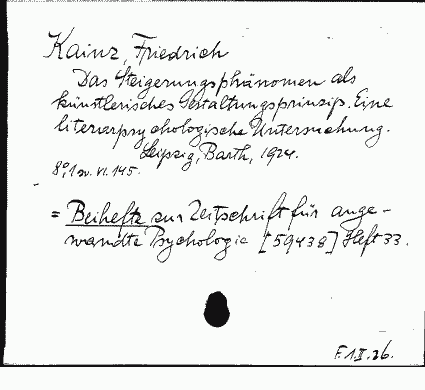 Kainz, Friedrich
Das Steigerungsphänomen als
künstlerisches Gestaltungsprinzip. Eine
literarpsychologische Untersuchung.
Leipzig, Barth, 1924.
8°, 1 w. VI. 145.
= Beihefte zur Zeitschrift für ange-
wandte Psychologie [59438] Heft 33.
F. 1. II. 26.